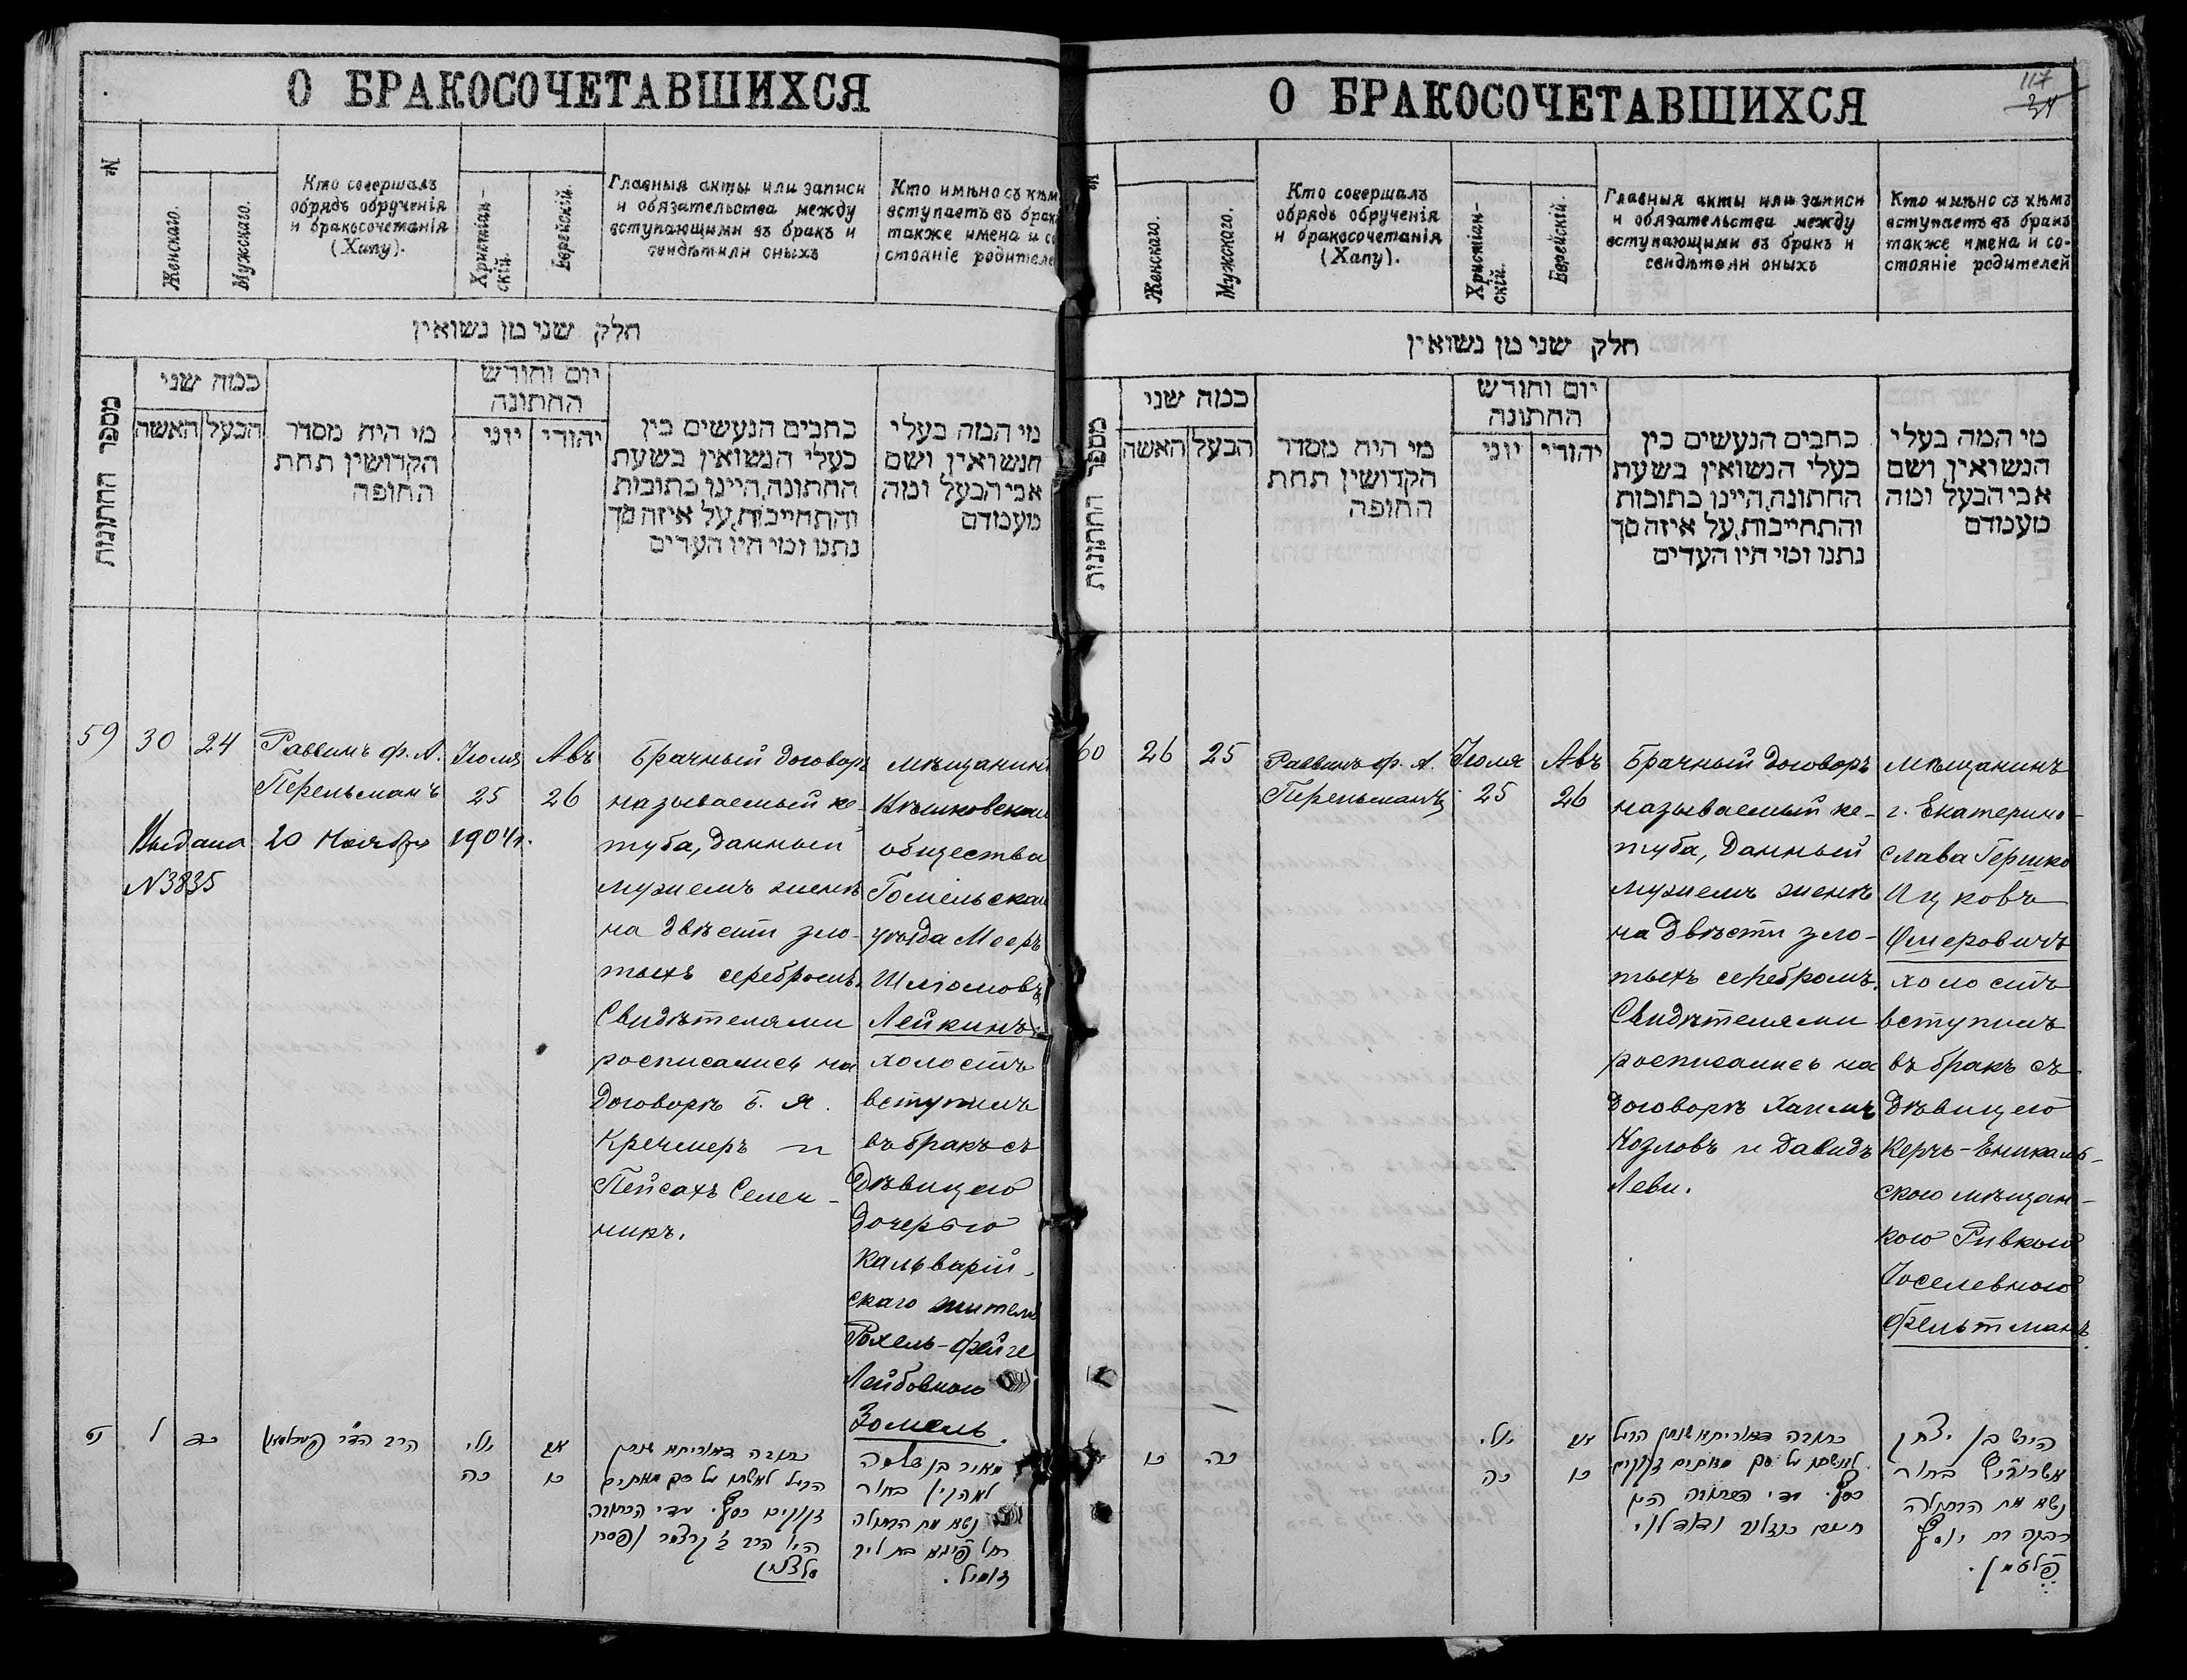 О БРАКОСОЧЕТАВШИХСЯ
№
Женскаго.
Мужскаго.
Кто совершалъ
обрядъ обрученія
и бракосочетанія
(Хапу).
Христіан-
скій.
Еврейскій.
Главныя акты или записи
и обязательства между
вступающими въ бракъ и
свидѣтили оныхъ
Кто имѣно съ кѣм
вступаетъ въ брак
также имена и со
стояніе родителе
חלק שני מן נשואין
מספר החתונות
כמה שני
האשה
הבעל
מי היה מסדר
הקדושין תחת
החופה
יום וחודש
החתונה
יוני
יהודי
כתבים הנעשים בין
בעלי הנשואין בשעת
החתונה, היינו כתובות
והתחייבות, על איזה סך
נתנו ומי היו העדים
מי המה בעלי
הנשואין ושם
אבי הבעל ומה
מעמדם
59
30
24
Раввинъ ф. А.
Перельманъ
Іюля
25
Авъ
26
Выдана 20 Ноября 1904 г.
№3835
Брачный договоръ
называемый ке-
туба, данный
мужемъ женѣ
на двѣсти зло-
тыхъ серебромъ.
Свидѣтелями
росписались на
договорѣ Б. Я.
Кречмеръ и
Пейсахъ
никъ.
мѣщанинъ
общества
Гомельскаго
уѣзда Мееръ
Шліомовъ
Лейкинъ
холостъ
вступилъ
въ бракъ съ
дѣвицею
дочерью
Кальварій-
скаго жителя
Рохель-Фейге
Лейбовною
Зомель.
נט
ל
כד
הרב הר״ר פערלמאן
יולי
כה
אב
כו
כתובה דאוריתא שנתן
הנ״ל לאשתו על סך מאתים
זקוקים כסף. עדי הכתובה
מאיר בן שלמה
בחור
נשא את הבתולה
רחל פייגא בת ליב
זאמיל.
О БРАКОСОЧЕТАВШИХСЯ
117
34
№
Женскаго.
Мужскаго.
Кто совершалъ
обрядъ обрученія
и бракосочетанія
(Хапу).
Христіан-
скій.
Еврейскій.
Главныя акты или записи
и обязательства между
вступающими въ бракъ и
свидѣтели оныхъ
Кто имѣно съ кѣмъ
вступаетъ въ бракъ
также имена и со-
стояніе родителей
חלק שני מן נשואין
מספר החתונות
כמה שני
האשה
הבעל
מי היה מסדר
הקדושין תחת
החופה
יום וחודש
החתונה
יוני
יהודי
כתבים הנעשים בין
בעלי הנשואין בשעת
החתונה, היינו כתובות
והתחייבות, על איזה סך
נתנו ומי היו העדים
מי המה בעלי
הנשואין ושם
אבי הבעל ומה
מעמדם
60
26
25
Раввинъ ф. А.
Перельманъ
Іюля
25
Авъ
26
Брачный договоръ
называемый ке-
туба, данный
мужемъ женѣ
на двѣсти зло-
тыхъ серебромъ.
Свидѣтелями
росписались на
договорѣ Хаимъ
Козловъ и Давидъ
Леви.
мѣщанинъ
г. Екатерино-
слава Гершко
Ицковъ
Ошеровичъ
холостъ
вступилъ
въ бракъ съ
дѣвицею
Керчь-Еникаль-
скою мѣщан-
кою Ривкою
Іоселевною
Фельтманъ.
כו
כה
יולי
כה
אב
כו
כתובה דאוריתא שנתן הנ״ל
לאשתו על סך מאתים זקוקים
כסף. עדי הכתובה היו
חיים קוזלוב ודוד לוי.
הירש בן יצחק
אשרוביץ בחור
נשא את הבתולה
רבקה בת יוסף
פלטמן.